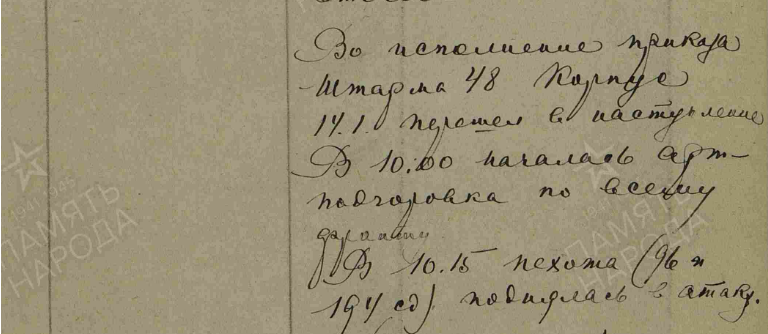 Во исполнение приказа
Штарма 48 Корпус
14.1. перешел в наступление
В 10.00 началась арт-
подготовка по всему
фронту
В 10.15 пехота (96 и
194 сд). поднялась в атаку.
1941-1945
ПАМЯТЬ
НАРОДА
ПАМЯТЬ
НАРОДА